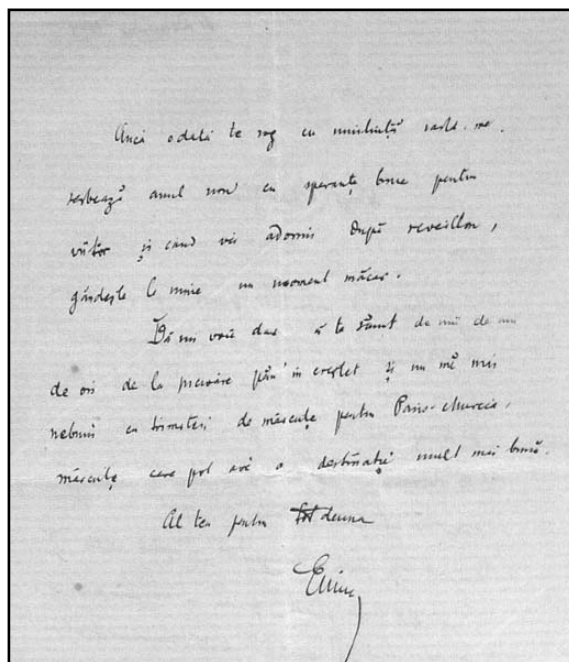 Ancă odată te rog cu umilință iartă-me,
serbează anul nou cu speranțe bune pentru
viitor și când vei adormi după reveillon,
gândește la mine un moment măcar.
Dă mi voie dar să te sărut de mii de mii
de ori de la picioare pân' în creștet și nu mĕ mai
nebuni cu trimiteri de măscuțe pentru
măscuțe care pot avé o destinație mult mai bună.
Al tĕu pentru totdeuna
Emin